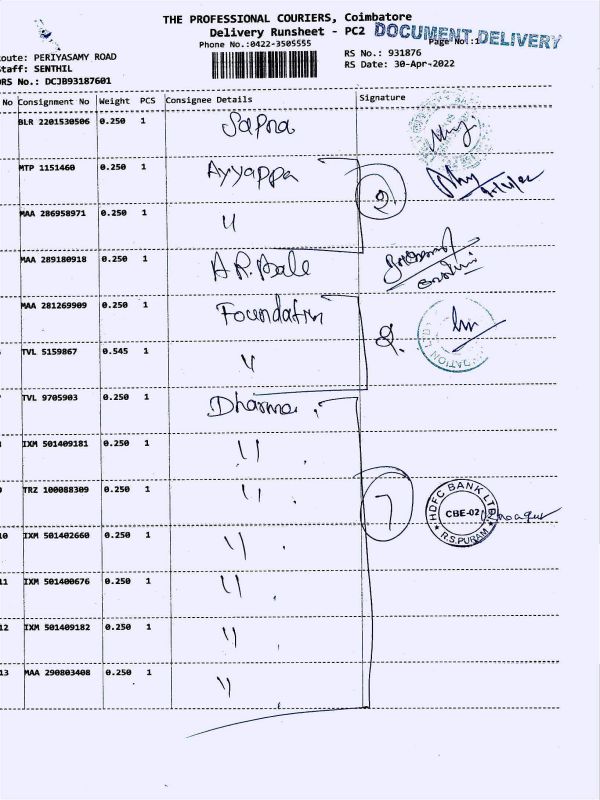 THE PROFESSIONAL COURIERS, Coimbatore
Delivery Runsheet - PC2 DOCUMENT DELIVERY
Phone No.:0422-3505555 Page No.:1
oute: PERIYASAMY ROAD RS No.: 931876
taff: SENTHIL RS Date: 30-Apr-2022
DRS No.: DCJB93187601
No Consignment No Weight PCS Consignee Details Signature
BLR 2201530506 0.250 1 Sapna
MTP 1151460 0.250 1 Ayyappa
MAA 286958971 0.250 1 〃 2
MAA 289180918 0.250 1 A.R.Bale
MAA 281269909 0.250 1 Foundation
TVL 5159867 0.545 1 〃 2
TVL 9705903 0.250 1 Dharma
IXM 501409181 0.250 1 〃
TRZ 100088309 0.250 1 〃 7 HDFC BANK LTD. CBE-02 R.S.PURAM
10 IXM 501402660 0.250 1 〃
11 IXM 501400676 0.250 1 〃
12 IXM 501409182 0.250 1 〃
13 MAA 290803408 0.250 1 〃